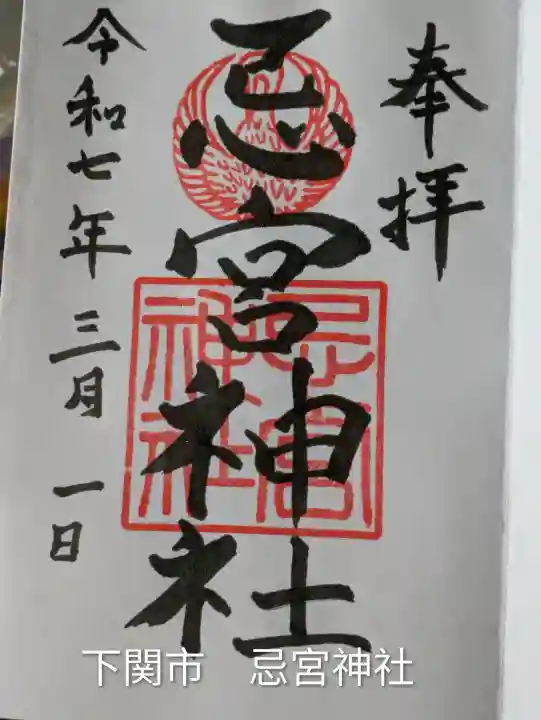 奉拝
忌宮神社
忌宮
神社
令和七年三月一日
下関市　忌宮神社